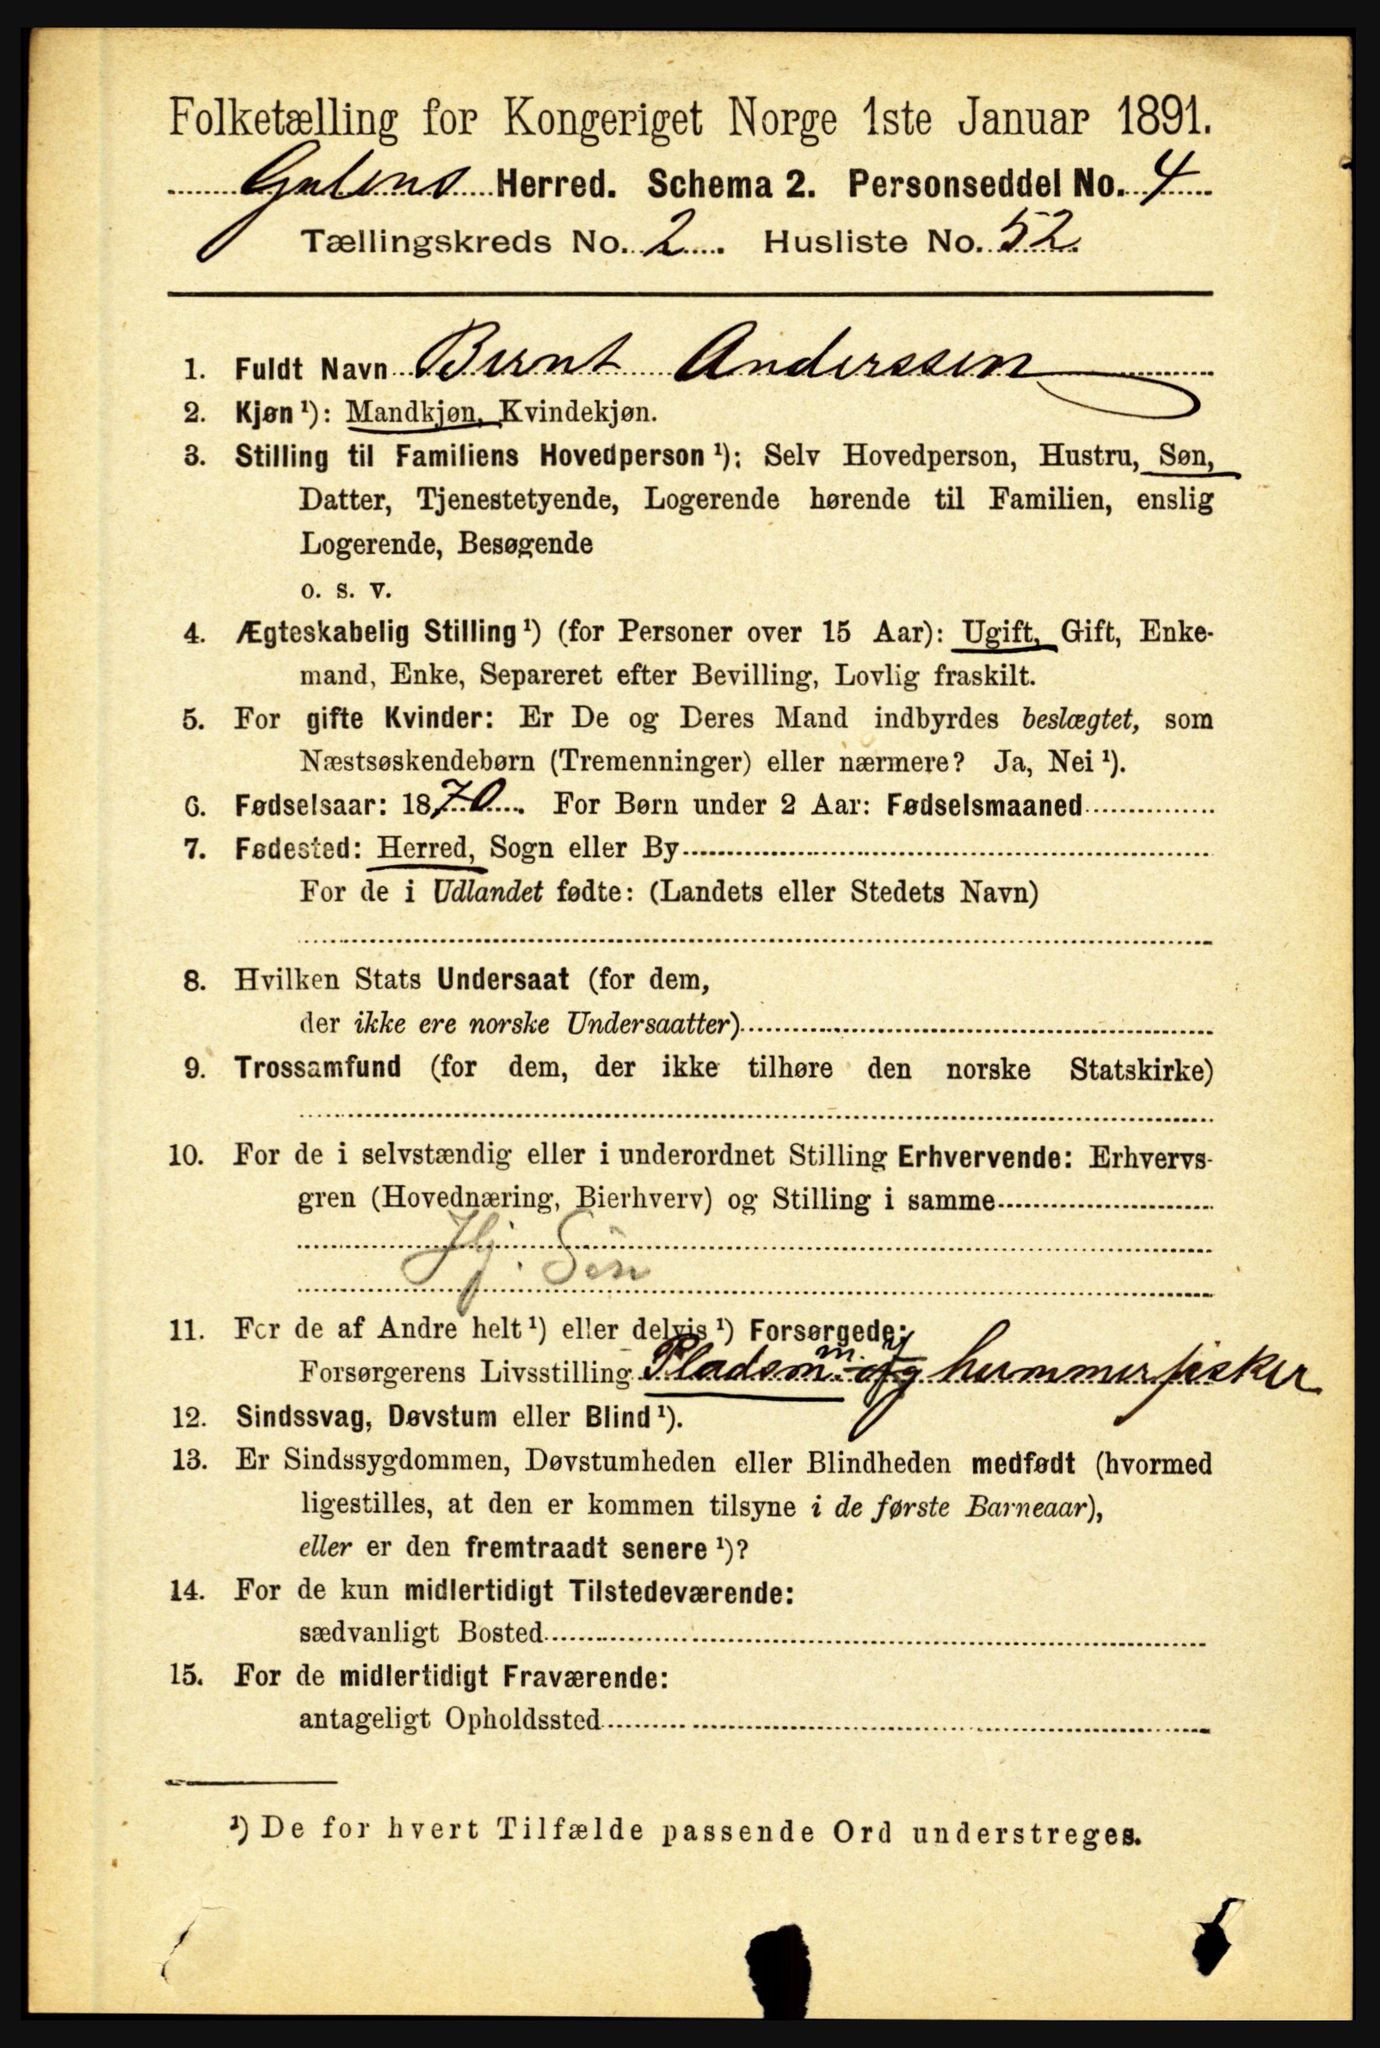 Folketælling for Kongeriget Norge 1ste Januar 1891.
Gulens Herred. Schema 2. Personseddel No. 4
Tællingskreds No. 2. Husliste No. 52
1. Fuldt Navn Bernt Anderssen
2. Kjøn ¹): Mandkjøn, Kvindekjøn.
3. Stilling til Familiens Hovedperson ¹): Selv Hovedperson, Hustru, Søn,
Datter, Tjenestetyende, Logerende hørende til Familien, enslig
Logerende, Besøgende
o. s. v.
4. Ægteskabelig Stilling ¹) (for Personer over 15 Aar): Ugift, Gift, Enke-
mand, Enke, Separeret efter Bevilling, Lovlig fraskilt.
5. For gifte Kvinder: Er De og Deres Mand indbyrdes beslægtet, som
Næstsøskendebørn (Tremenninger) eller nærmere? Ja, Nei ¹).
6. Fødselsaar: 1870. For Børn under 2 Aar: Fødselsmaaned
7. Fødested: Herred, Sogn eller By
For de i Udlandet fødte: (Landets eller Stedets Navn)
8. Hvilken Stats Undersaat (for dem,
der ikke ere norske Undersaatter)
9. Trossamfund (for dem, der ikke tilhøre den norske Statskirke)
10. For de i selvstændig eller i underordnet Stilling Erhvervende: Erhvervs-
gren (Hovednæring, Bierhverv) og Stilling i samme
Hj. Søn
11. For de af Andre helt ¹) eller delvis ¹) Forsørgede:
Forsørgerens Livsstilling Pladsm. m. og hummerfisker
12. Sindssvag, Døvstum eller Blind ¹).
13. Er Sindssygdommen, Døvstumheden eller Blindheden medfødt (hvormed
ligestilles, at den er kommen tilsyne i de første Barneaar),
eller er den fremtraadt senere ¹)?
14. For de kun midlertidigt Tilstedeværende:
sædvanligt Bosted
15. For de midlertidigt Fraværende:
antageligt Opholdssted
¹) De for hvert Tilfælde passende Ord understreges.